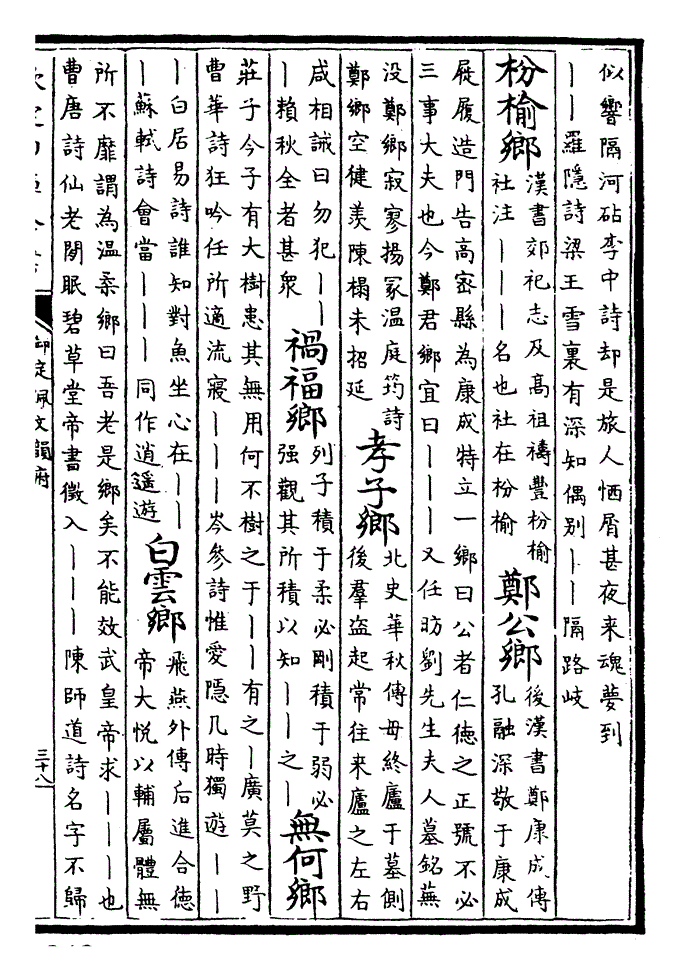 似響隔河砧李中詩却是旅人恓屑甚夜来魂夢到
丨丨羅隱詩梁王雪裏有深知偶别丨丨隔路岐
枌榆鄉
漢書郊祀志及高祖禱豐枌榆
社注丨丨丨名也社在枌榆
鄭公鄉
後漢書鄭康成傳
孔融深敬于康成
屣履造門告高密縣為康成特立一鄉曰公者仁德之正號不必
三事大夫也今鄭君鄉宜曰丨丨丨又任昉劉先生夫人墓銘蕪
没鄭鄉寂寥揚冢温庭筠詩
鄭鄉空健羡陳榻未招延
孝子鄉
北史華秋傳母終廬于墓側
後羣盗起常往来廬之左右
咸相誡曰勿犯丨丨
丨賴秋全者甚衆
禍福鄉
列子積于柔必剛積于弱必
强觀其所積以知丨丨之丨
無何鄉
莊子今子有大樹患其無用何不樹之于丨丨有之丨廣莫之野
曹華詩狂吟任所適流寢丨丨丨岑參詩惟愛隱几時獨遊丨丨
丨白居易詩誰知對魚坐心在丨丨
丨蘇軾詩會當丨丨丨同作逍遥遊
白雲鄉
飛燕外傳后進合德
帝大悦以輔屬體無
所不靡謂為温柔鄉曰吾老是鄉矣不能效武皇帝求丨丨丨也
曹唐詩仙老閒眠碧草堂帝書徵入丨丨丨陳師道詩名字不歸
御定佩文韻府
三十八